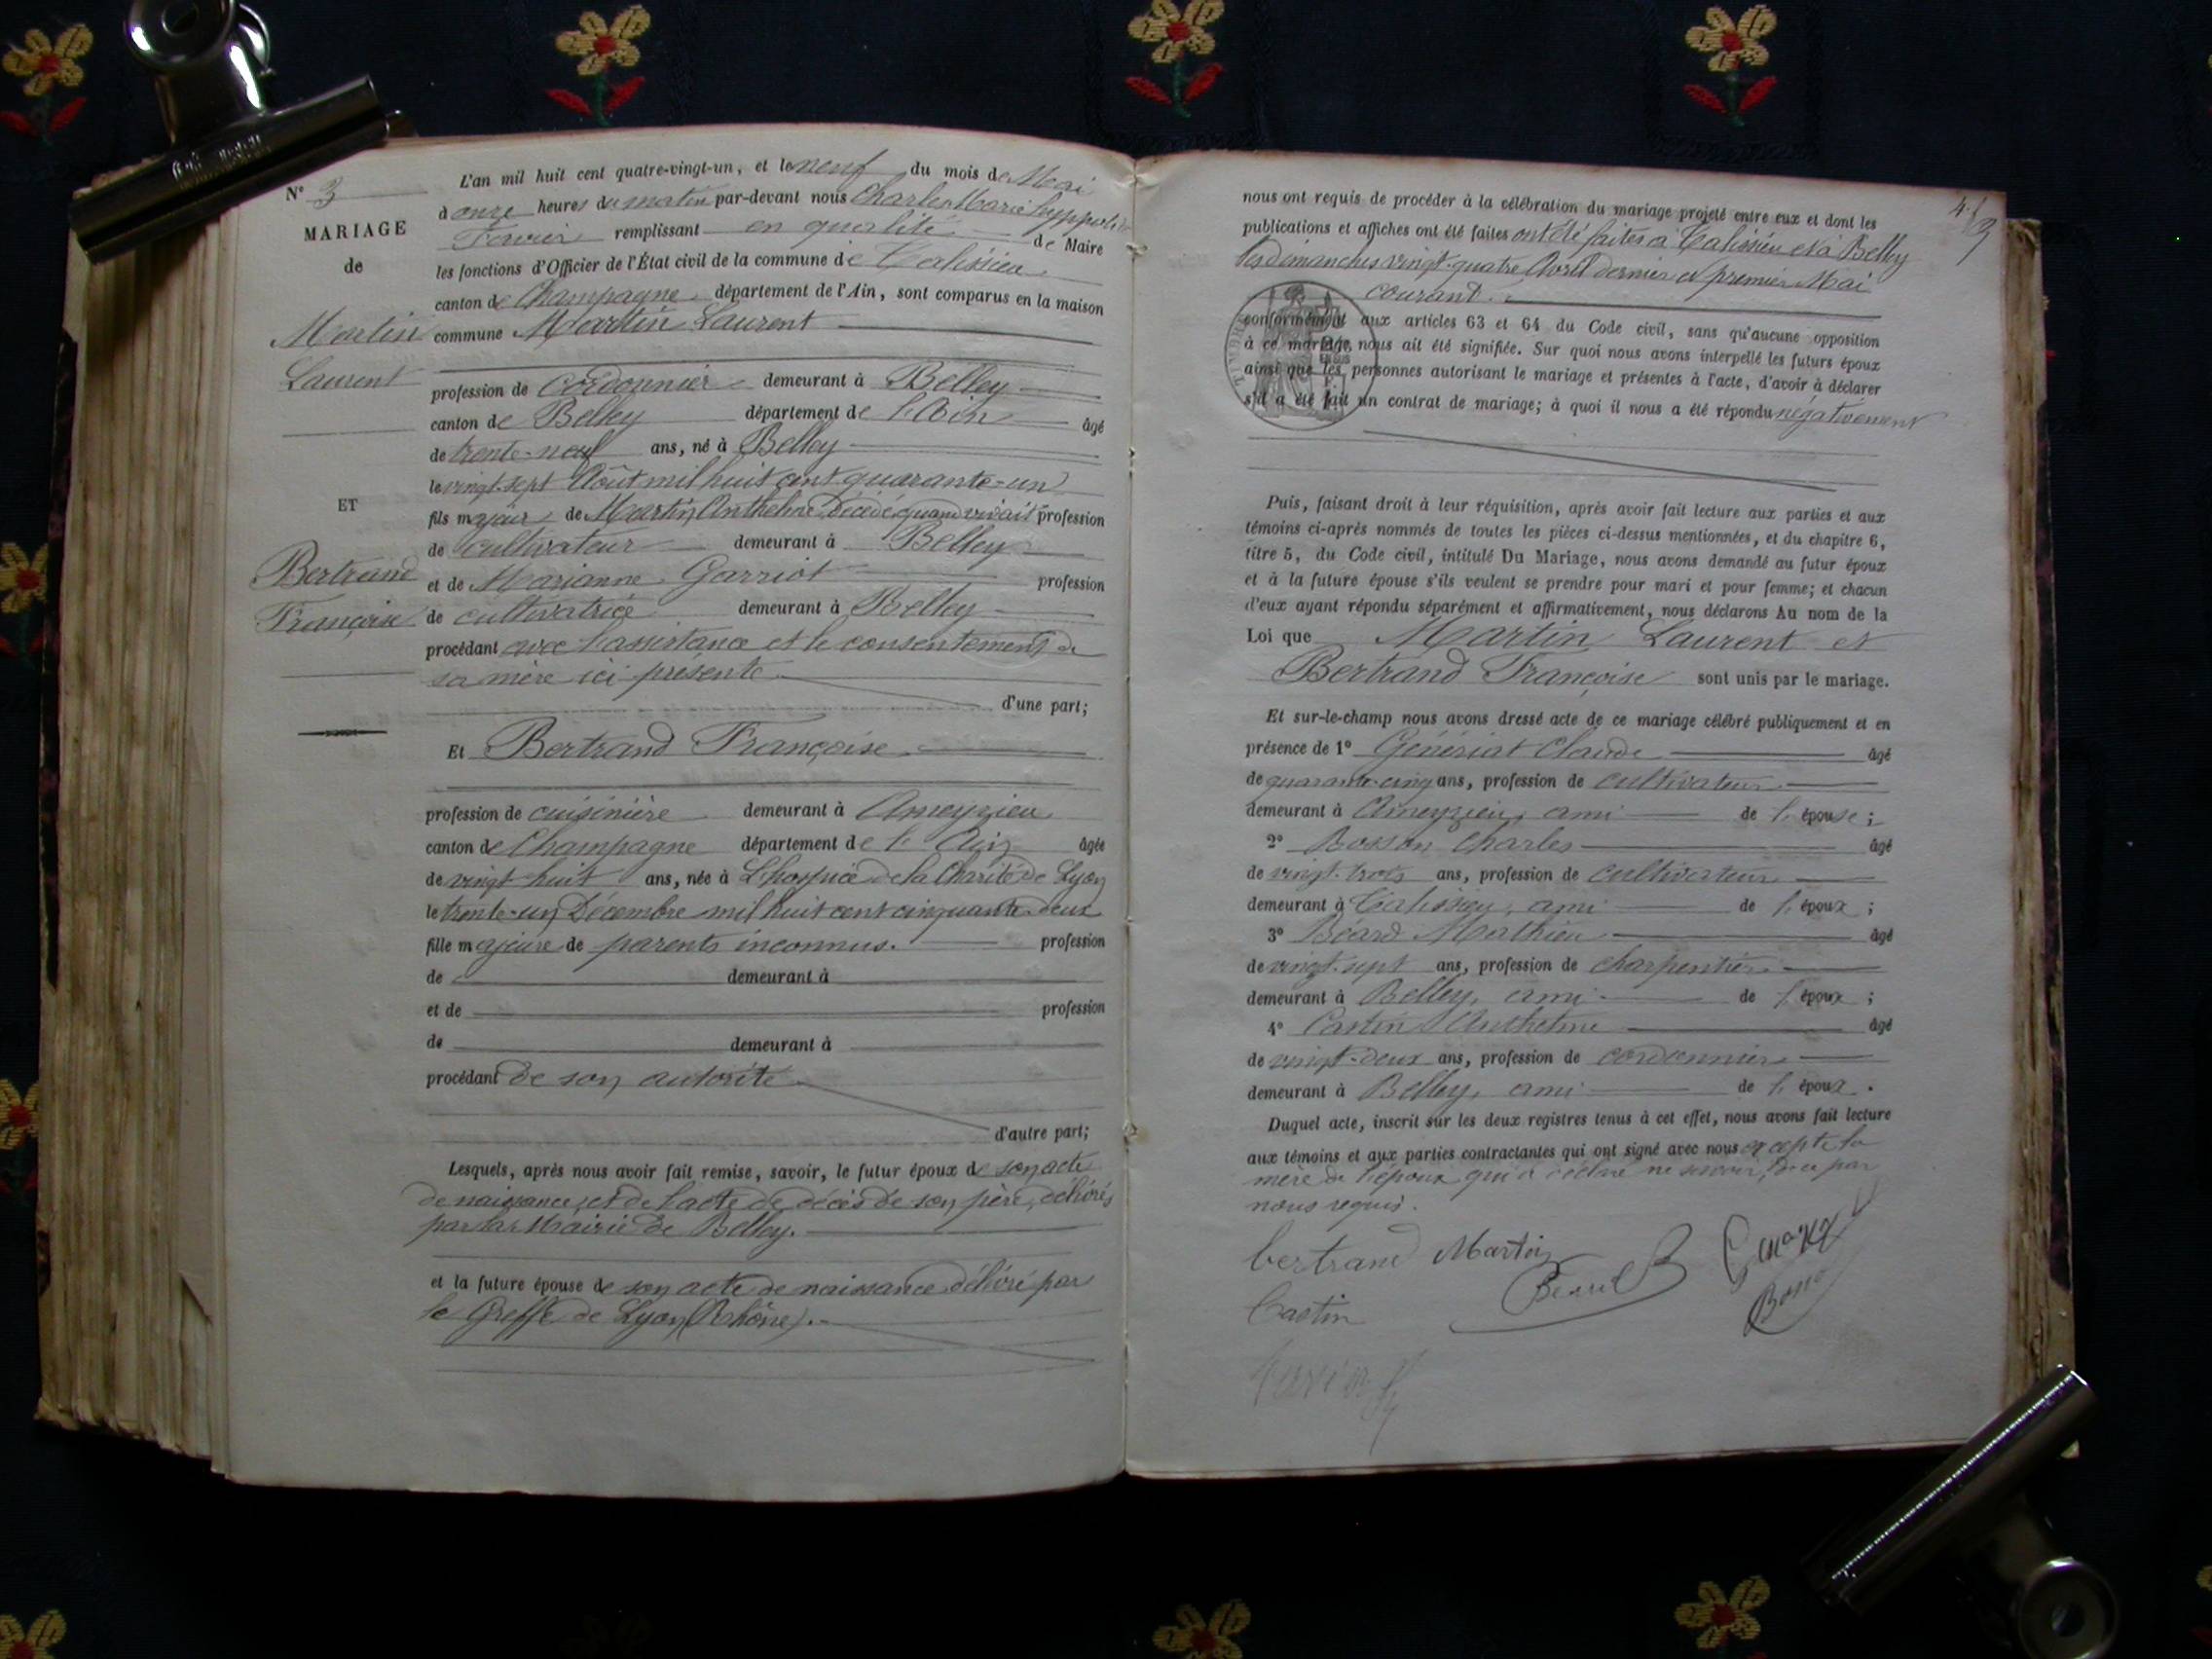 N° 3
MARIAGE
de
Martin
Laurent
ET
Bertrand
Françoise
L'an mil huit cent quatre-vingt-un, et le neuf du mois de Mai
à onze heures du matin par-devant nous Charles Marie hyppolite
remplissant en qualité de Maire
les fonctions d'Officier de l'État civil de la commune de Talissieu
canton de Champagne département de l'Ain, sont comparus en la maison
commune Martin Laurent
profession de cordonnier demeurant à Belley
canton de Belley département de l'Ain âgé
de trente-neuf ans, né à Belley
le vingt-sept Août mil huit cent quarante-un
fils majeur de Martin Anthelme Décédé quand vivait profession
de cultivateur demeurant à Belley
et de Marianne Garriot profession
de cultivatrice demeurant à Belley
procédant avec l'assistance et le consentement de
sa mère ici présente
d'une part;
Et Bertrand Françoise
profession de cuisinière demeurant à Ameyzieu
canton de Champagne département de l'Ain âgée
de vingt huit ans, née à L'hospice de la Charité de Lyon
le trente-un Décembre mil huit cent cinquante-deux
fille majeure de parents inconnus. profession
de demeurant à
et de profession
de demeurant à
procédant de son autorité
d'autre part;
Lesquels, après nous avoir fait remise, savoir, le futur époux de son acte
de naissance et de l'acte de décès de son père, délivrés
par la Mairie de Belley.
et la future épouse de son acte de naissance délivré par
le Greffe de Lyon (Rhône).
nous ont requis de procéder à la célébration du mariage projeté entre eux et dont les
publications et affiches ont été faites ont été faites à Talissieu et à Belley
les dimanches vingt-quatre Avril dernier et premier Mai
courant.
conformément aux articles 63 et 64 du Code civil, sans qu'aucune opposition
à ce mariage nous ait été signifiée. Sur quoi nous avons interpellé les futurs époux
ainsi que les personnes autorisant le mariage et présentes à l'acte, d'avoir à déclarer
s'il a été fait un contrat de mariage; à quoi il nous a été répondu négativement
Puis, faisant droit à leur réquisition, après avoir fait lecture aux parties et aux
témoins ci-après nommés de toutes les pièces ci-dessus mentionnées, et du chapitre 6,
titre 5, du Code civil, intitulé Du Mariage, nous avons demandé au futur époux
et à la future épouse s'ils veulent se prendre pour mari et pour femme; et chacun
d'eux ayant répondu séparément et affirmativement, nous déclarons Au nom de la
Loi que Martin Laurent et
Bertrand Françoise sont unis par le mariage.
Et sur-le-champ nous avons dressé acte de ce mariage célébré publiquement et en
présence de 1° Génériat Claude âgé
de quarante-cinq ans, profession de cultivateur
demeurant à Ameyzieu, ami de l'épouse;
2° Bosson Charles âgé
de vingt-trois ans, profession de cultivateur
demeurant à Talissieu, ami de l'époux;
3° Béard Mathieu âgé
de vingt-sept ans, profession de charpentier
demeurant à Belley, ami de l'époux;
4° Castin Anthelme âgé
de vingt-deux ans, profession de cordonnier
demeurant à Belley, ami de l'époux.
Duquel acte, inscrit sur les deux registres tenus à cet effet, nous avons fait lecture
aux témoins et aux parties contractantes qui ont signé avec nous excepté la
mère de l'époux qui a déclaré ne savoir, de ce par
nous requis.
bertrand Martin
Castin